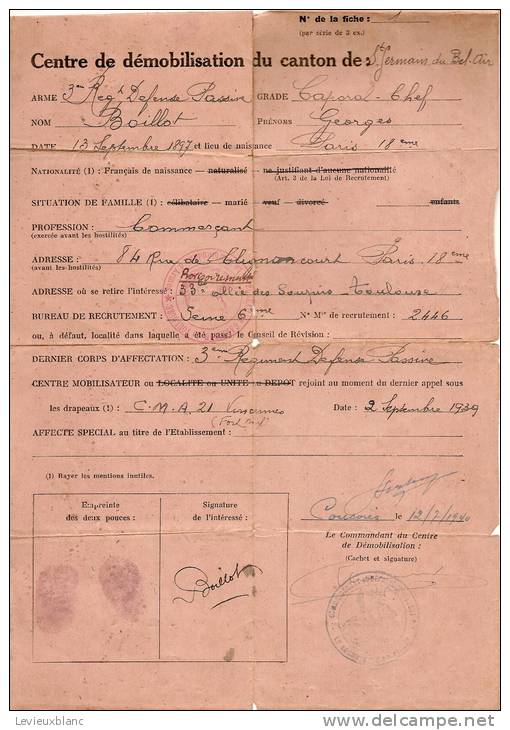 N° de la fiche : 1
(par série de 3 ex.)
Centre de démobilisation du canton de : St Germains du Bel-Air
ARME 3me Regt Defense Passive GRADE Caporal-Chef
NOM Boillot PRÉNOMS Georges
DATE 13 Septembre 1897 et lieu de naissance Paris 18eme
NATIONALITÉ (1) : Français de naissance — naturalisé — ne justifiant d'aucune nationalité
(Art. 3 de la Loi de Recrutement)
SITUATION DE FAMILLE (1) : célibataire — marié — veuf — divorcé enfants
PROFESSION : Commerçant
(exercée avant les hostilités)
ADRESSE : 84 Rue de Clignancourt Paris 18eme
(avant les hostilités)
ADRESSE où se retire l'intéressé : 33 allée des Soupirs - Toulouse
BUREAU DE RECRUTEMENT : Seine 6eme N° Mle de recrutement : 2446
ou, à défaut, localité dans laquelle a été passé le Conseil de Révision :
DERNIER CORPS D'AFFECTATION : 3eme Regiment Defense Passive
CENTRE MOBILISATEUR ou LOCALITE ou UNITE ou DEPOT rejoint au moment du dernier appel sous
les drapeaux (1) : C.M.A. 21 Vincennes Date : 2 Septembre 1939
AFFECTE SPECIAL au titre de l'Etablissement :
(1) Rayer les mentions inutiles.
Empreinte
des deux pouces :
Signature
de l'intéressé :
Boillot
le 12/7/1940
Le Commandant du Centre
de Démobilisation :
(Cachet et signature)
Levieuxblanc
delcampe.net